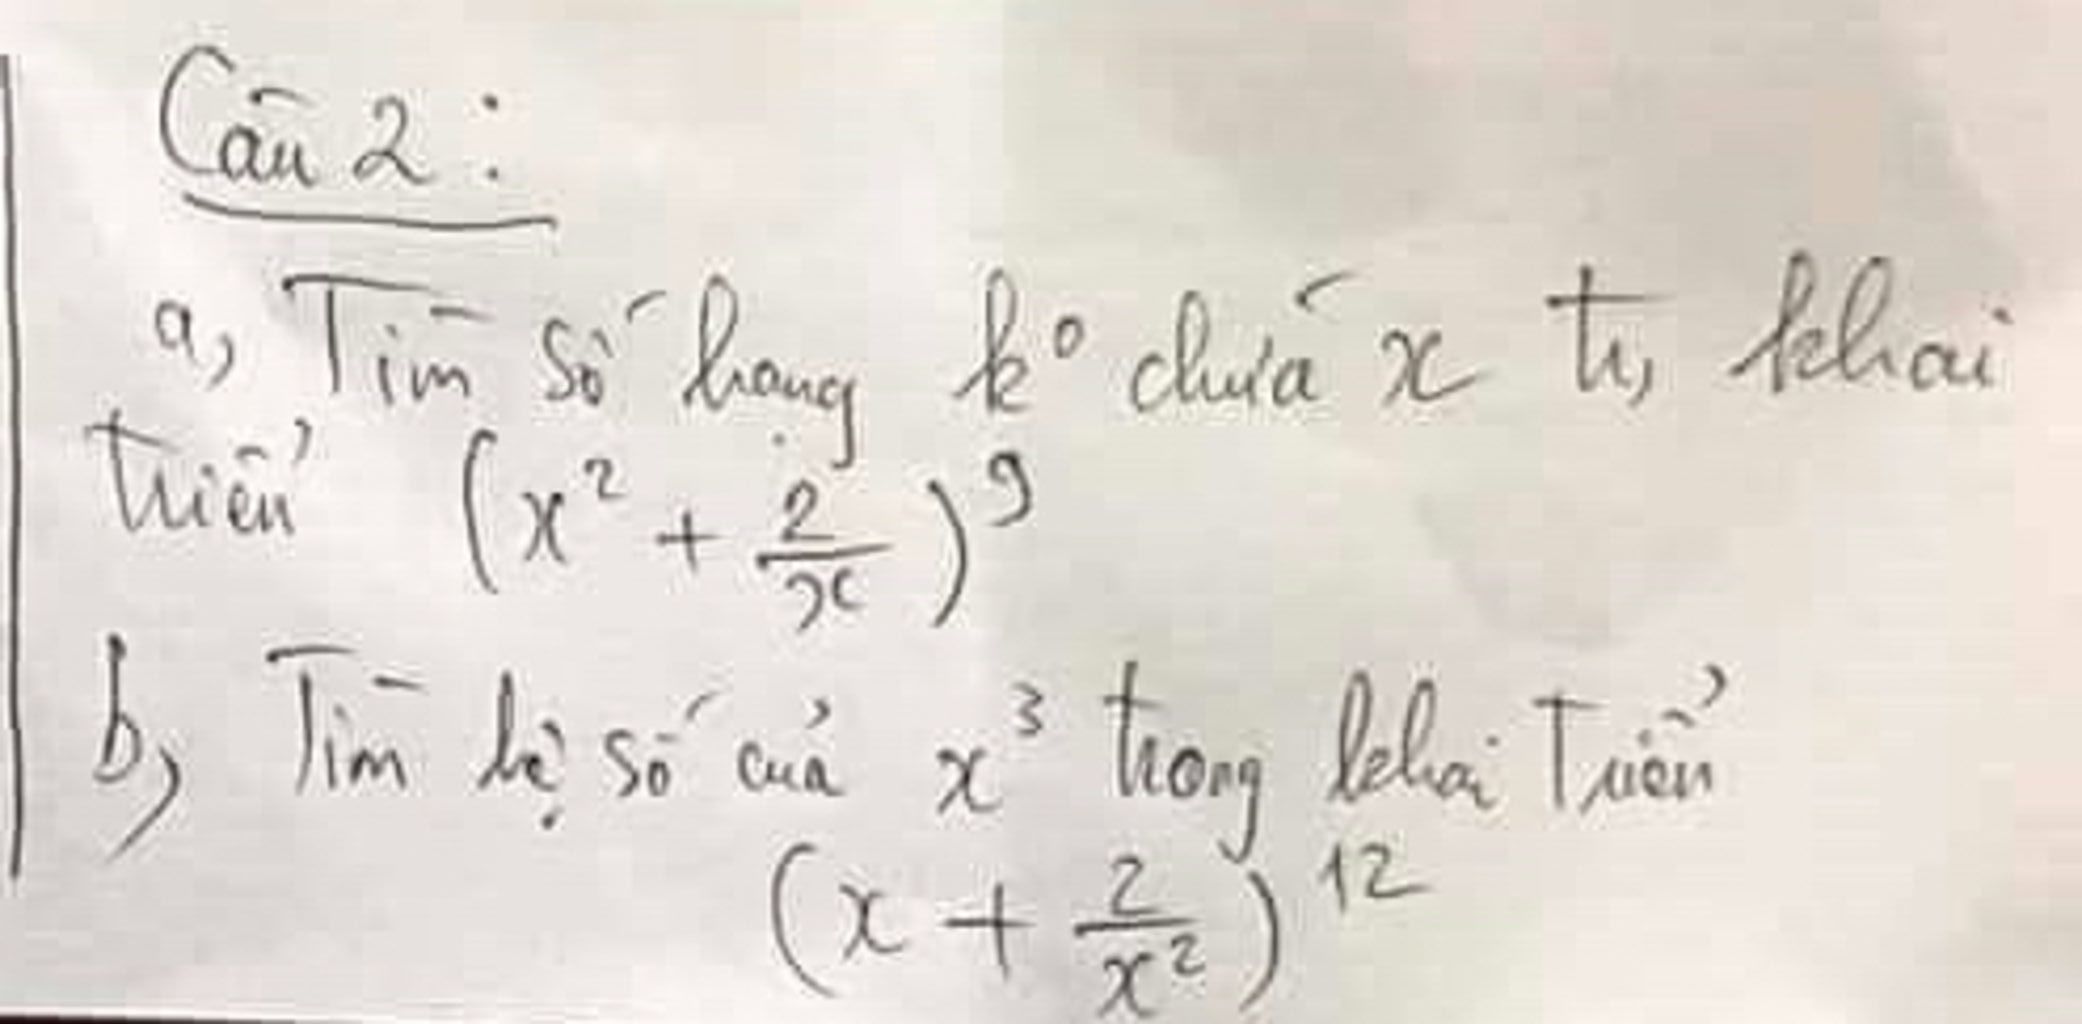 Câu 2:
a, Tìm số hạng k° chứa x tr, khai
triển (x² + 2/x)⁹
b, Tìm hệ số của x³ trong khai triển
(x + 2/x²)¹²